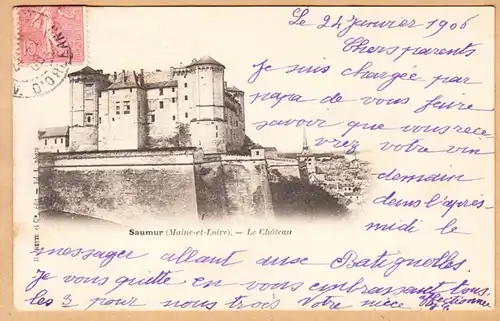 Le 24 Janvier 1906
Chers parents
Je suis chargée par
papa de vous faire
savoir que vous rece
vrez votre vin
demain
dans l'après-
midi le
messager allant aux Batignolles.
Je vous quitte en vous embrassant tous
les 3 pour nous trois Votre nièce affectionnée
Saumur (Maine-et-Loire). — Le Château
10